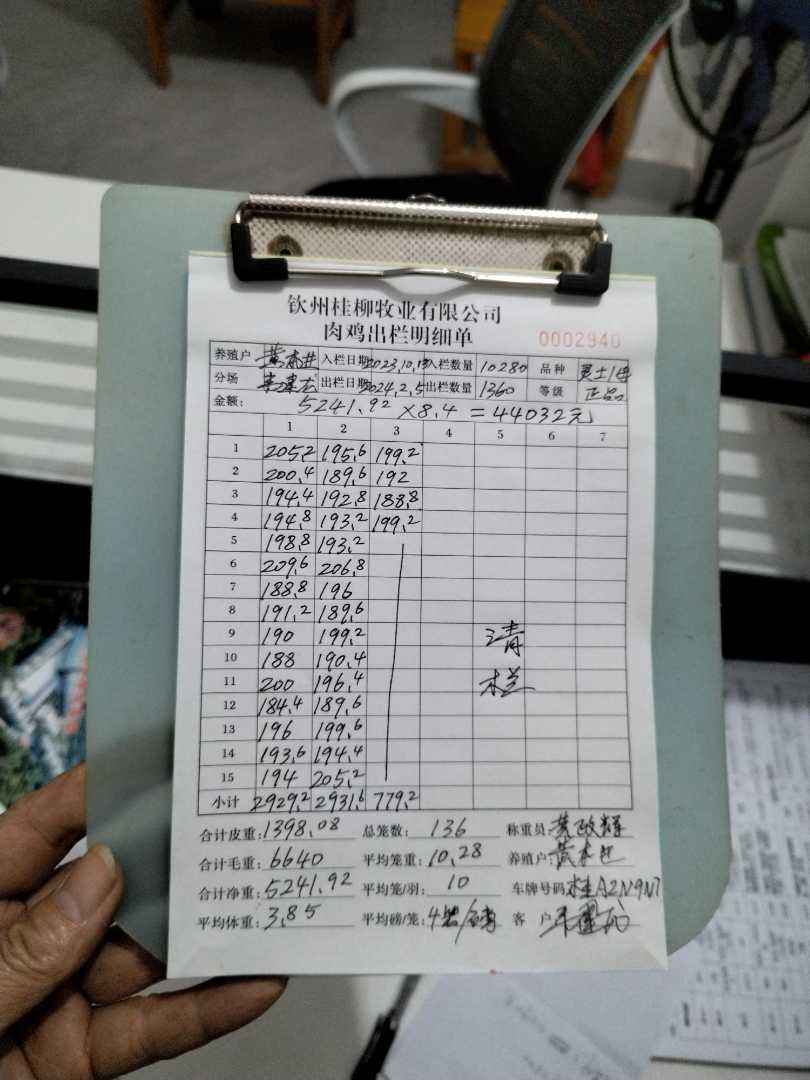 钦州桂柳牧业有限公司
肉鸡出栏明细单 0002940
养殖户 入栏日期 2023.10.13 入栏数量 10280 品种
分场 出栏日期 2024.2.5 出栏数量 1360 等级 正品
金额: 5241.92 ×8.4 =44032元
1 2 3 4 5 6 7
1 205.2 195.6 199.2
2 200.4 189.6 192
3 194.4 192.8 188.8
4 194.8 193.2 199.2
5 198.8 193.2
6 209.6 206.8
7 188.8 196
8 191.2 189.6
9 190 199.2 清
10 188 190.4
11 200 196.4 栏
12 184.4 189.6
13 196 199.6
14 193.6 194.4
15 194 205.2
小计 2929.2 2931.6 779.2
合计皮重: 1398.08 总笼数: 136 称重员:
合计毛重: 6640 平均笼重: 10.28 养殖户:
合计净重: 5241.92 平均笼/羽: 10 车牌号码: 桂A2N9N7
平均体重: 3.85 平均磅/笼: 客户